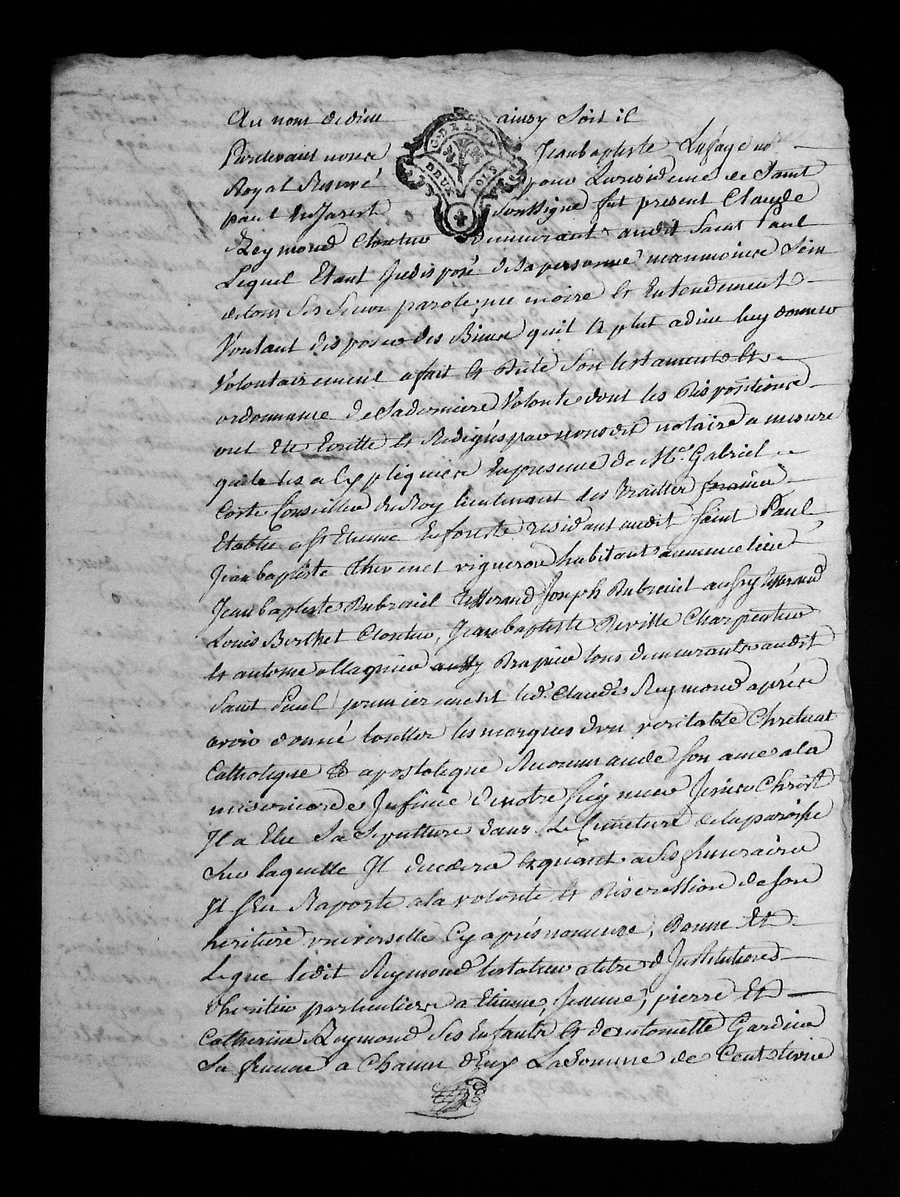 Au nom de dieu ainsy soit il
G. DE LYON
DEUX SOLS
Pardevant nous Jeanbaptiste Lafaye no
Royal Reservé pour La residence de Saint
paul En Jarest soussigné fut present Claude
Reymond Cloutier demeurant audit Saint Paul
Lequel Etant Indisposé de sa personne neanmoins sein
de tous ses sieux parole, memoire et Entendement
Voulant disposer des Biens quil a plut a dieu luy donner
Volontairement a fait et Dicté son testament et
ordonnance de sa derniere Volonté dont les Dispositions
ont Eté Ecritte et Redigés par nous dit notaire a mesure
quil les a Expliquées En presence de Mr. Gabriel
Coste Conseiller du Roy lieutenant des traittes
Etablie a St Etienne En foreste residant audit Saint Paul
Jean baptiste Thevenet vigneron habitant au meme lieu
Jean baptiste Dubreuil Joseph Dubreuil aussy
Louis Berthet Cloutier, Jean baptiste Reville Charpentier
et antoine aussy Drapier tous demeurants audit
Saint Paul premierement led. Claude Reymond après
avoir donné toutter les marques d'un veritable Chretient
Catholique & apostolique Recommande son ame a la
misericorde Infinie de notre seigneur Jesus Christ
Il a Elu sa sepulture dans Le Cimetiere de la paroisse
sur laquelle Il decedera Et quant a ses funeraires
Il s'En Raporte a la volonté Et Discrettion de son
heritiere universelle Cy après nommée, Donne Et
Legue ledit Reymond testateur a titre d'Institution
d'heritier particuliere a Etienne, Jeanne, pierre Et
Catherine Reymond ses Enfants Et de antoinette Gardier
sa femme a Chacun d'Eux La somme de Cent Livres